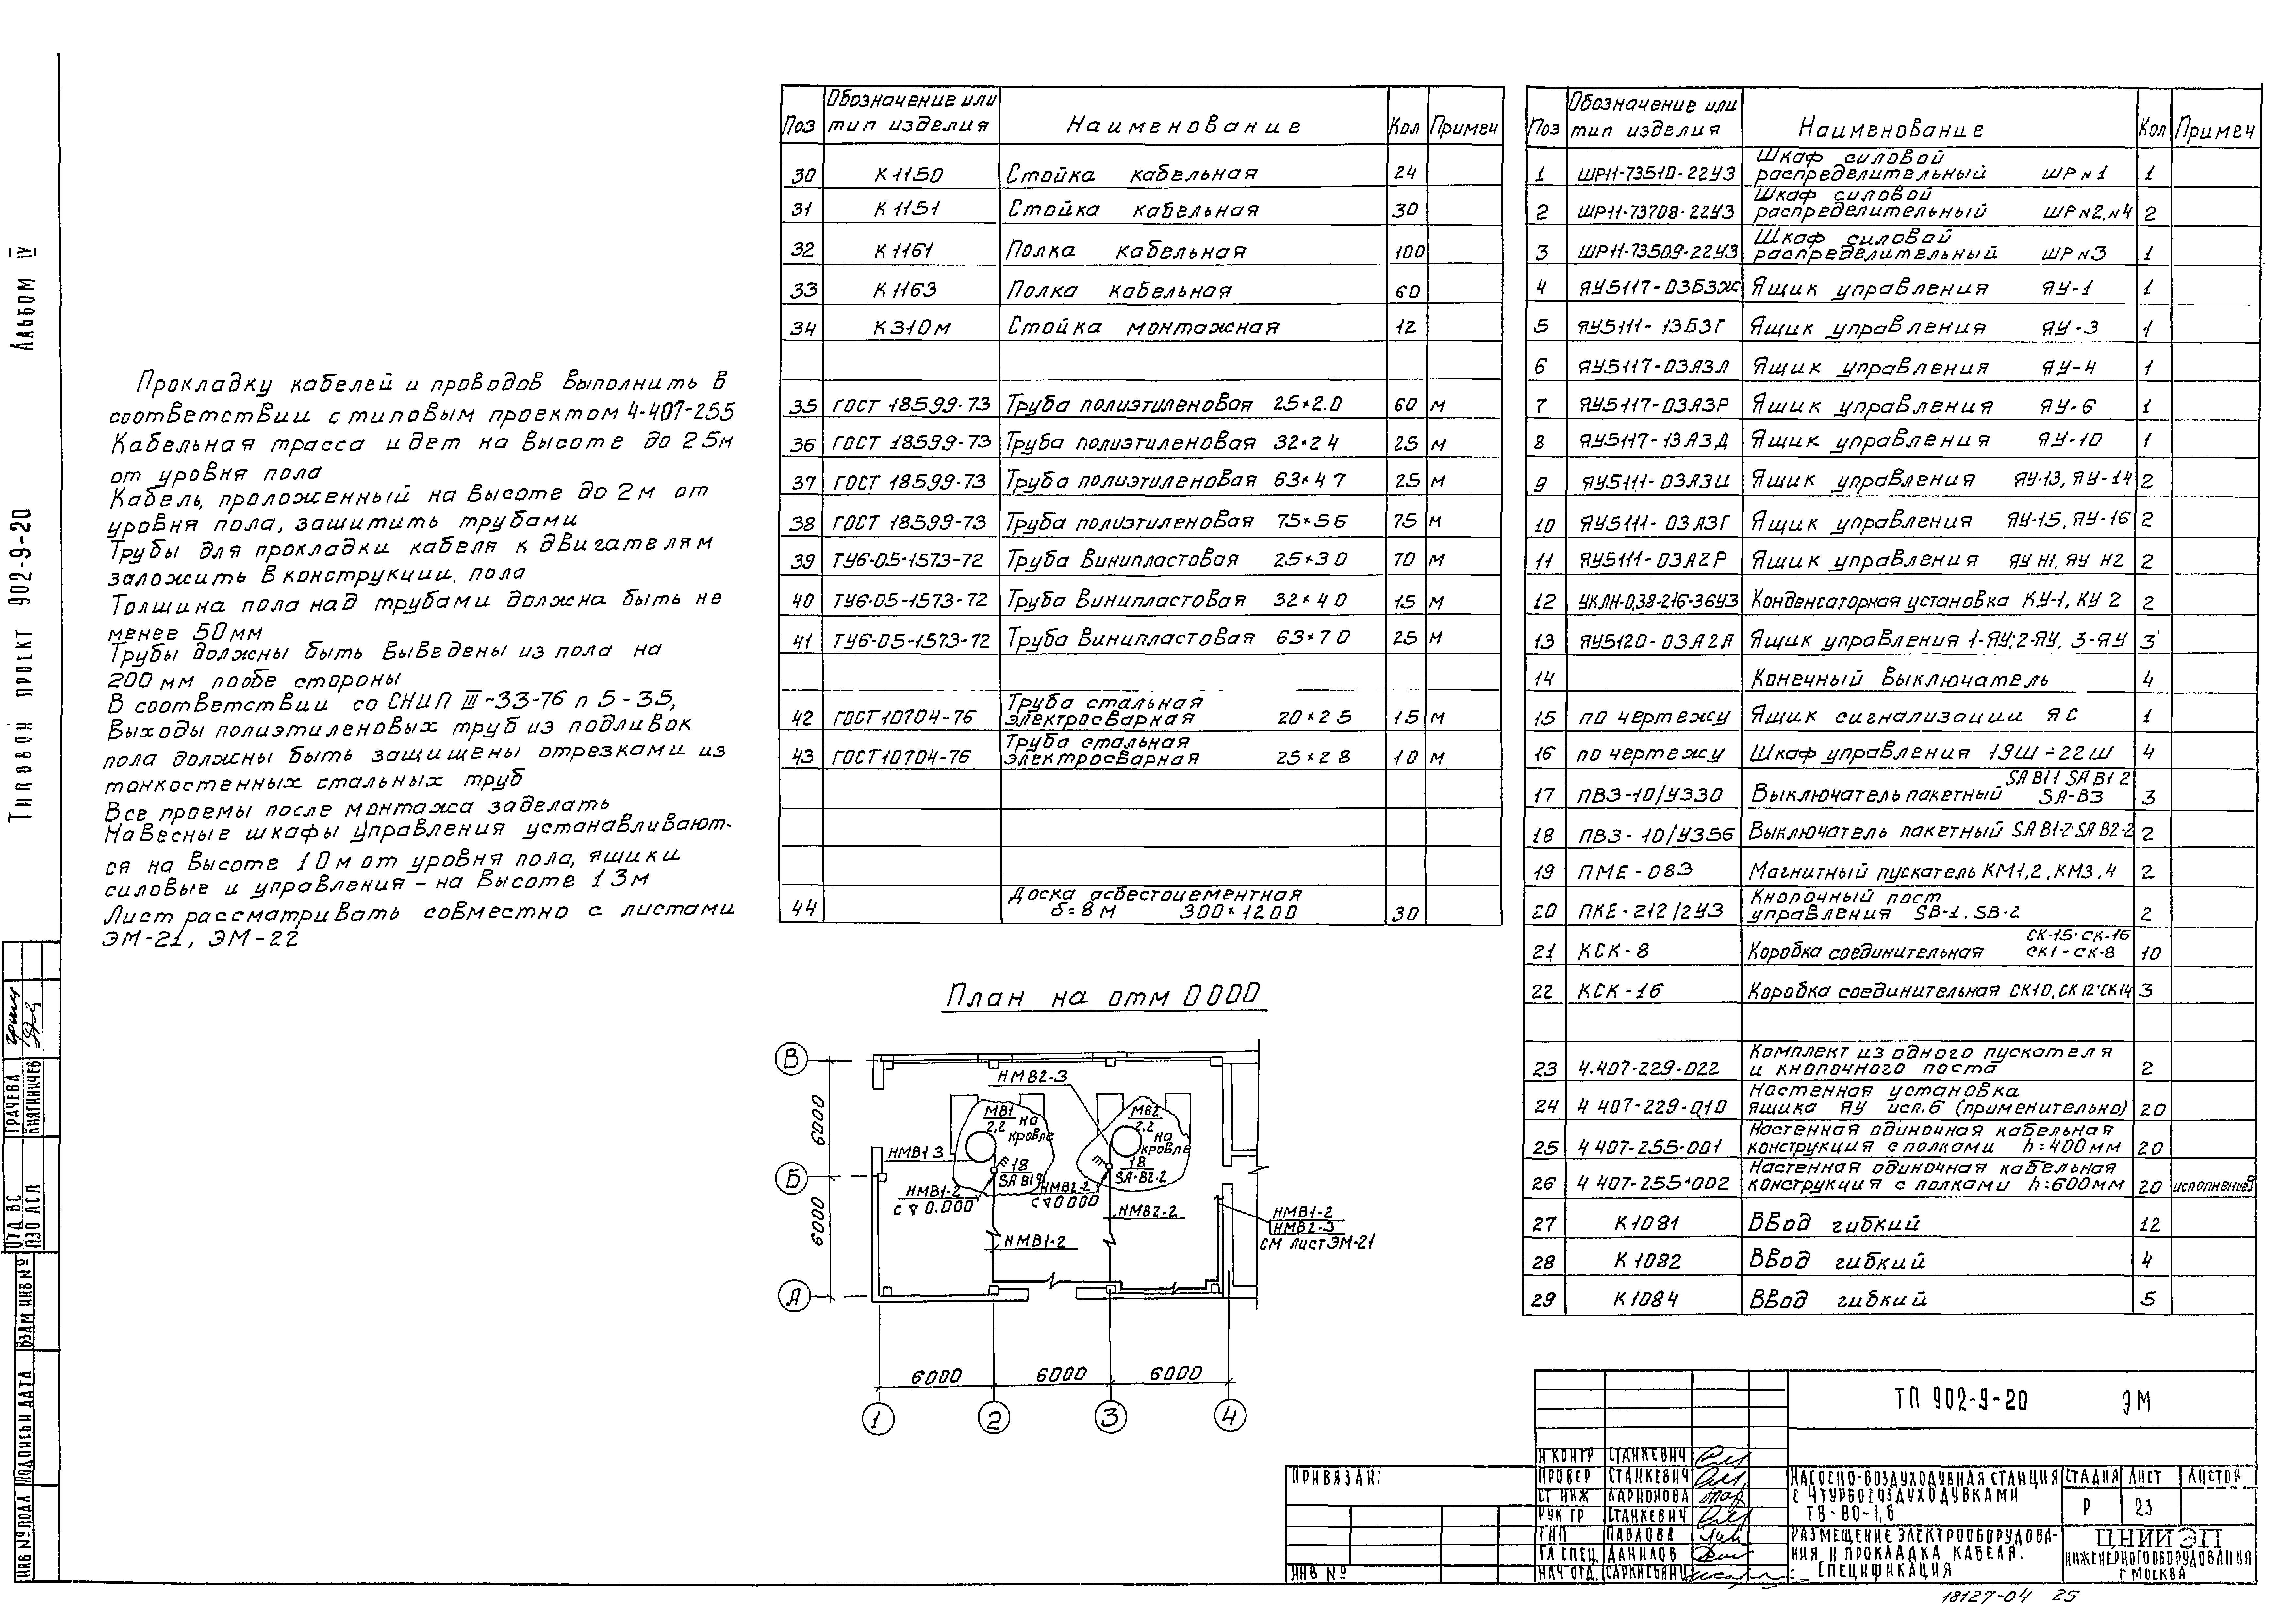 Альбом IV
Типовой проект 902-9-20
Прокладку кабелей и проводов выполнить в
соответствии с типовым проектом 4-407-255
Кабельная трасса идет на высоте до 25м
от уровня пола
Кабель, проложенный на высоте до 2м от
уровня пола, защитить трубами
Трубы для прокладки кабеля к двигателям
заложить в конструкции пола
Толщина пола над трубами должна быть не
менее 50мм
Трубы должны быть выведены из пола на
200мм пообе стороны
В соответствии со СНиП III-33-76 п 5-35,
Выходы полиэтиленовых труб из подливок
пола должны быть защищены отрезками из
тонкостенных стальных труб
Все проемы после монтажа заделать
Навесные шкафы управления устанавливают-
ся на высоте 10м от уровня пола, ящики
силовые и управления - на высоте 13м
Лист рассматривать совместно с листами
ЭМ-21, ЭМ-22
Поз Обозначение или тип изделия Наименование Кол Примеч
30 К1150 Стойка кабельная 24
31 К1151 Стойка кабельная 30
32 К1161 Полка кабельная 100
33 К1163 Полка кабельная 60
34 К310м Стойка монтажная 12
35 ГОСТ 18599-73 Труба полиэтиленовая 25×2.0 60 м
36 ГОСТ 18599-73 Труба полиэтиленовая 32×24 25 м
37 ГОСТ 18599-73 Труба полиэтиленовая 63×47 25 м
38 ГОСТ 18599-73 Труба полиэтиленовая 75×56 75 м
39 ТУ6-05-1573-72 Труба винипластовая 25×30 70 м
40 ТУ6-05-1573-72 Труба винипластовая 32×40 15 м
41 ТУ6-05-1573-72 Труба винипластовая 63×70 25 м
42 ГОСТ10704-76 Труба стальная электросварная 20×25 15 м
43 ГОСТ10704-76 Труба стальная электросварная 25×28 10 м
44 Доска асбестоцементная б=8м 300×1200 30
Поз Обозначение или тип изделия Наименование Кол Примеч
1 ШР11-73510-22У3 Шкаф силовой распределительный ШР N1 1
2 ШР11-73708-22У3 Шкаф силовой распределительный ШР N2, N4 2
3 ШР11-73509-22У3 Шкаф силовой распределительный ШР N3 1
4 ЯУ5117-03Б3Ж Ящик управления ЯУ-1 1
5 ЯУ5111-13Б3Г Ящик управления ЯУ-3 1
6 ЯУ5117-03А3Л Ящик управления ЯУ-4 1
7 ЯУ5117-03А3Р Ящик управления ЯУ-6 1
8 ЯУ5117-13А3Д Ящик управления ЯУ-10 1
9 ЯУ5111-03А3И Ящик управления ЯУ-13, ЯУ-14 2
10 ЯУ5111-03А3Г Ящик управления ЯУ-15, ЯУ-16 2
11 ЯУ5111-03А2Р Ящик управления ЯУ Н1, ЯУ Н2 2
12 УКЛН-0,38-216-36У3 Конденсаторная установка КУ-1, КУ 2 2
13 ЯУ5120-03А2А Ящик управления 1-ЯУ; 2-ЯУ, 3-ЯУ 3
14 Конечный выключатель 4
15 по чертежу Ящик сигнализации ЯС 1
16 по чертежу Шкаф управления 19Ш÷22Ш 4
17 ПВ3-10/У330 Выключатель пакетный SA B1 1 SA B1 2 SA-B3 3
18 ПВ3-10/У356 Выключатель пакетный SA B1-2·SA B2-2 2
19 ПМЕ-083 Магнитный пускатель КМ1,2, КМ3,4 2
20 ПКЕ-212/2У3 Кнопочный пост управления SB-1, SB-2 2
21 КСК-8 Коробка соединительная СК-15·СК-16 СК1-СК-8 10
22 КСК-16 Коробка соединительная СК10, СК12·СК14 3
23 4.407-229-022 Комплект из одного пускателя и кнопочного поста 2
24 4 407-229-010 Настенная установка ящика ЯУ исп.6 (применительно) 20
25 4 407-255-001 Настенная одиночная кабельная конструкция с полками h=400мм 20
26 4 407-255-002 Настенная одиночная кабельная конструкция с полками h=600мм 20 исполнение
27 К1081 Ввод гибкий 12
28 К1082 Ввод гибкий 4
29 К1084 Ввод гибкий 5
План на отм 0 000
В
Б
А
6000
6000
НМВ2-3
МВ1
2,2
на
кровле
МВ2
2,2
на
кровле
НМВ1 3
18
18
SA·B2-2
НМВ1-2
с ▽ 0.000
НМВ2-2
с ▽ 0 000
НМВ2-2
НМВ1-2
НМВ1-2
НМВ2-3
см лист ЭМ-21
6000 6000 6000
1 2 3 4
ТП 902-9-20 ЭМ
Привязан:
Инв №
Н контр Станкевич
Провер Станкевич
Ст инж Ларионова
Рук гр Станкевич
ГИП Павлова
Гл спец. Данилов
Нач отд. Саркисьянц
Насосно-воздуходувная станция
с 4 турбогоздуходувками
ТВ-80-1,6
Размещение электрооборудова-
ния и прокладка кабеля.
Спецификация
Стадия Лист Листов
Р 23
ЦНИИЭП
инженерного оборудования
г Москва
18127-04 25
Грачева
Княгиничев
Отд ВС
ПЗО АСП
Взам инв №
Подпись и дата
Инв № подл